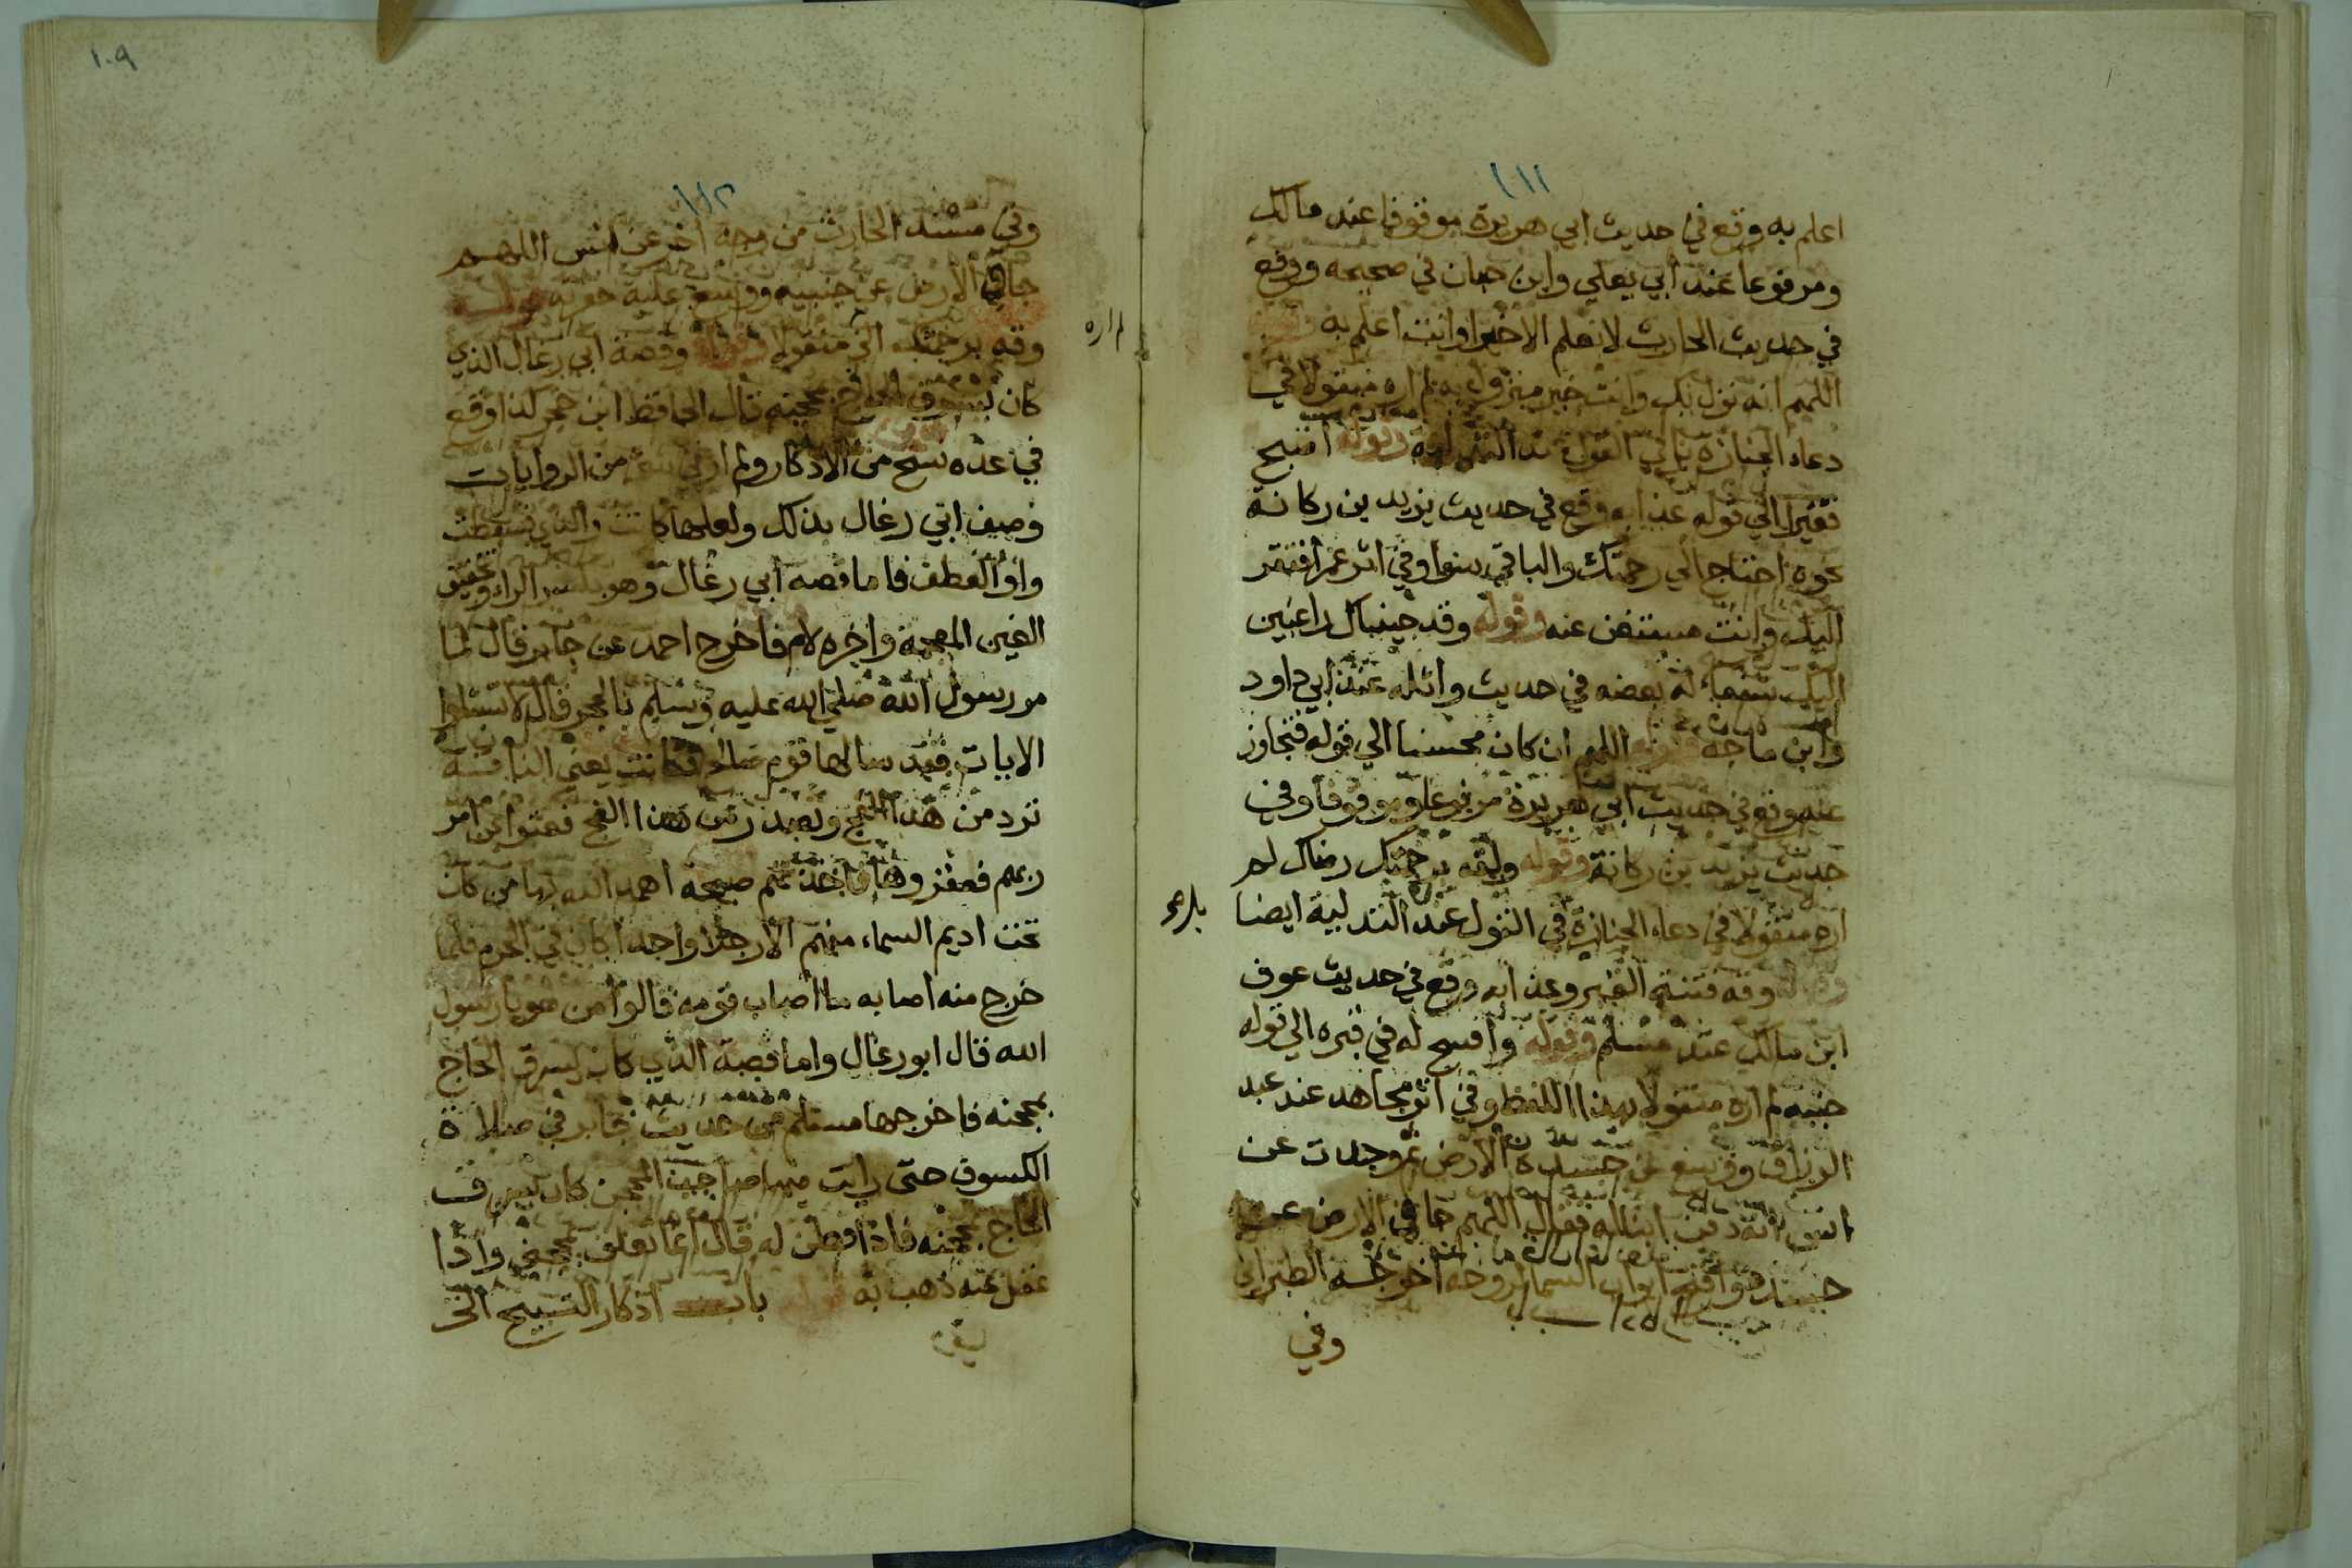 ١١١
اعلم به وقع في حديث ابي هريرة موقوفا عند مالك
ومرفوعا عند ابي يعلي وابن حبان في صحيحه ووقع
في حديث الحارث لا نعلم الا خيرا وانت اعلم به
اللهم انه نزل بك وانت خير منزول به لم اره منقولا في
دعاء الجنازة وقوله اصبح
فقيرا الي قوله عذابه وقع في حديث يزيد بن ركانة
نحوه احتاج الي رحمتك والباقي سوا وفي اثر عمر افتقر
اليك وانت مستغن عنه وقوله وقد جيناك راغبين
اليك شفعاء له بعضه في حديث واثله عند ابي داود
وابن ماجه اللهم ان كان محسنا الي قوله فتجاوز
عنه وقع في حديث ابي هريرة مرفوعا وموقوفا وفي
حديث يزيد بن ركانة وقوله ولقه برحمتك رضاك لم
اره منقولا في دعاء الجنازة في القول عند التدلية ايضا
وقه فتنة القبر وعذابه وقع في حديث عوف
ابن مالك عند مسلم وقوله وافسح له في قبره الي قوله
جنبيه لم اره منقولا بهذا اللفظ وفي اثر مجاهد عند عبد
الرزاق ووسع عن جسده الارض ثم وجدت عن
انس انه دفن ابنا له فقال اللهم جافي الارض عن
جسده وافتح ابواب السماء لروحه اخرجه الطبراني
وفي
بلغ
١٠٩
١١٢
وفي مسند الحارث من وجه اخر عن انس اللهم
جافي الارض عن جنبيه ووسع عليه حفرته
وقه برحمتك الخ منقولا وقصة ابي رغال الذي
كان يسرق الحاج بمحجنه قال الحافظ ابن حجر كذا وقع
في عده نسخ من الاذكار ولم ار في من الروايات
وصف ابي رغال بذلك ولعلها كانت والذي فسقطت
واو العطف فاما قصه ابي رغال وهو بكسر الراء وتخفيف
الغين المعجمة واخره لام فاخرج احمد عن جابر قال لما
مر رسول الله صلي الله عليه وسلم بالحجر قال لا تسئلوا
الايات فقد سالها قوم صالح فكانت يعني الناقة
ترد من هذا الفج وتصدر من هذا الفج فعتوا عن امر
ربهم فعقروها فاخذتهم صيحة اهمد الله بها من كان
تحت اديم السماء منهم الا رجلا واحدا كان في الحرم فلما
خرج منه اصابه ما اصاب قومه قالوا من هو يا رسول
الله قال ابو رغال واما قصة الذي كان يسرق الحاج
بمحجنه فاخرجها مسلم من حديث جابر في صلاة
الكسوف حتى رايت فيها صاحب المحجن كان يسرق
الحاج بمحجنه فاذا فطن له قال انما تعلق بمحجني واذا
غفل عنه ذهب به باب اذكار التسبيح الخ
لم اره